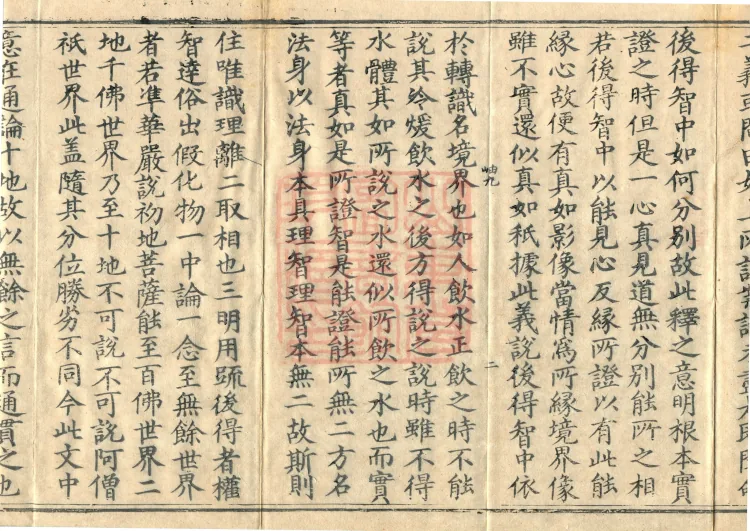 後得智中如何分別故此釋之意明根本實
證之時但是一心真見道無分別能所之相
若後得智中以能見心反緣所證以有此能
緣心故便有真如影像當情為所緣境界像
雖不實還似真如秖據此義說後得智中依
岫九
二
於轉識名境界也如人飲水正飲之時不能
說其冷煖飲水之後方得說之說時雖不得
水體其如所說之水還似所飲之水也而實
等者真如是所證智是能證能所無二方名
法身以法身本具理智理智本無二故斯則
住唯識理離二取相也三明用䟽後得者權
智達俗出假化物一中論一念至無餘世界
者若準華嚴說初地菩薩能至百佛世界二
地千佛世界乃至十地不可說不可說阿僧
祇世界此盖隨其分位勝劣不同今此文中
意在通論十地故以無餘之言而通貫之也